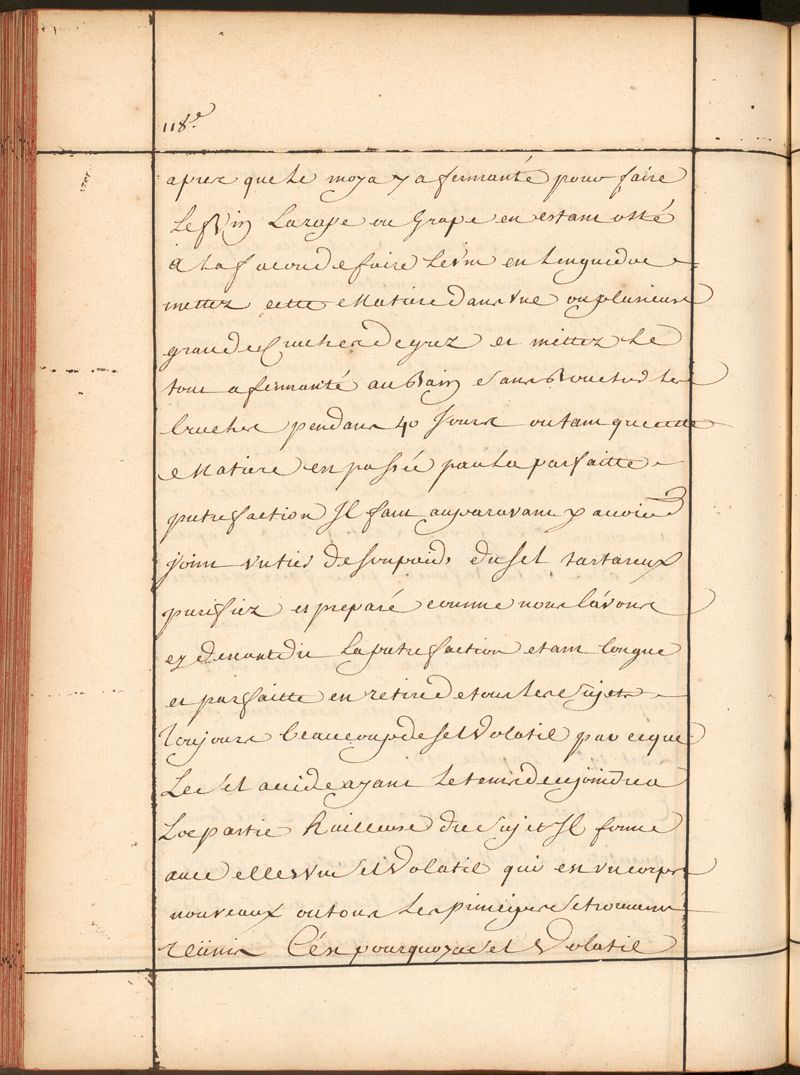 118.e
apres que le moya y a fermanté pour faire
Le Vin La rape ou Grape en estant osté
a la facon de faire le vin en Lenguedoc
mettez cette Matiere dans vne ou plusieurs
grandes Cruches de grez et mettez le
tout a fermanté au Bain sans Boucher les
Cruches pendans 40 Jours ou tant que cette
Matiere en passée par la parfaitte
putrefaction Il faut auparavant y avoir
joint vn tier de son poids du sel tartareux
purifiez et preparé comme nous l'avons
cy devant dit La putrefaction etant longue
et parfaitte en retire de tous les Sujets
Toujours beaucoup de sel Volatil par ce que
Le Sel accide ayant le tems de se joindre a
La partie huilleuse du Sujet Il forme
avec elle vn sel Volatil qui en vn corps
nouveaux ou tous les principes se trouvent
reünis C'en pourquoy ce sel Volatil